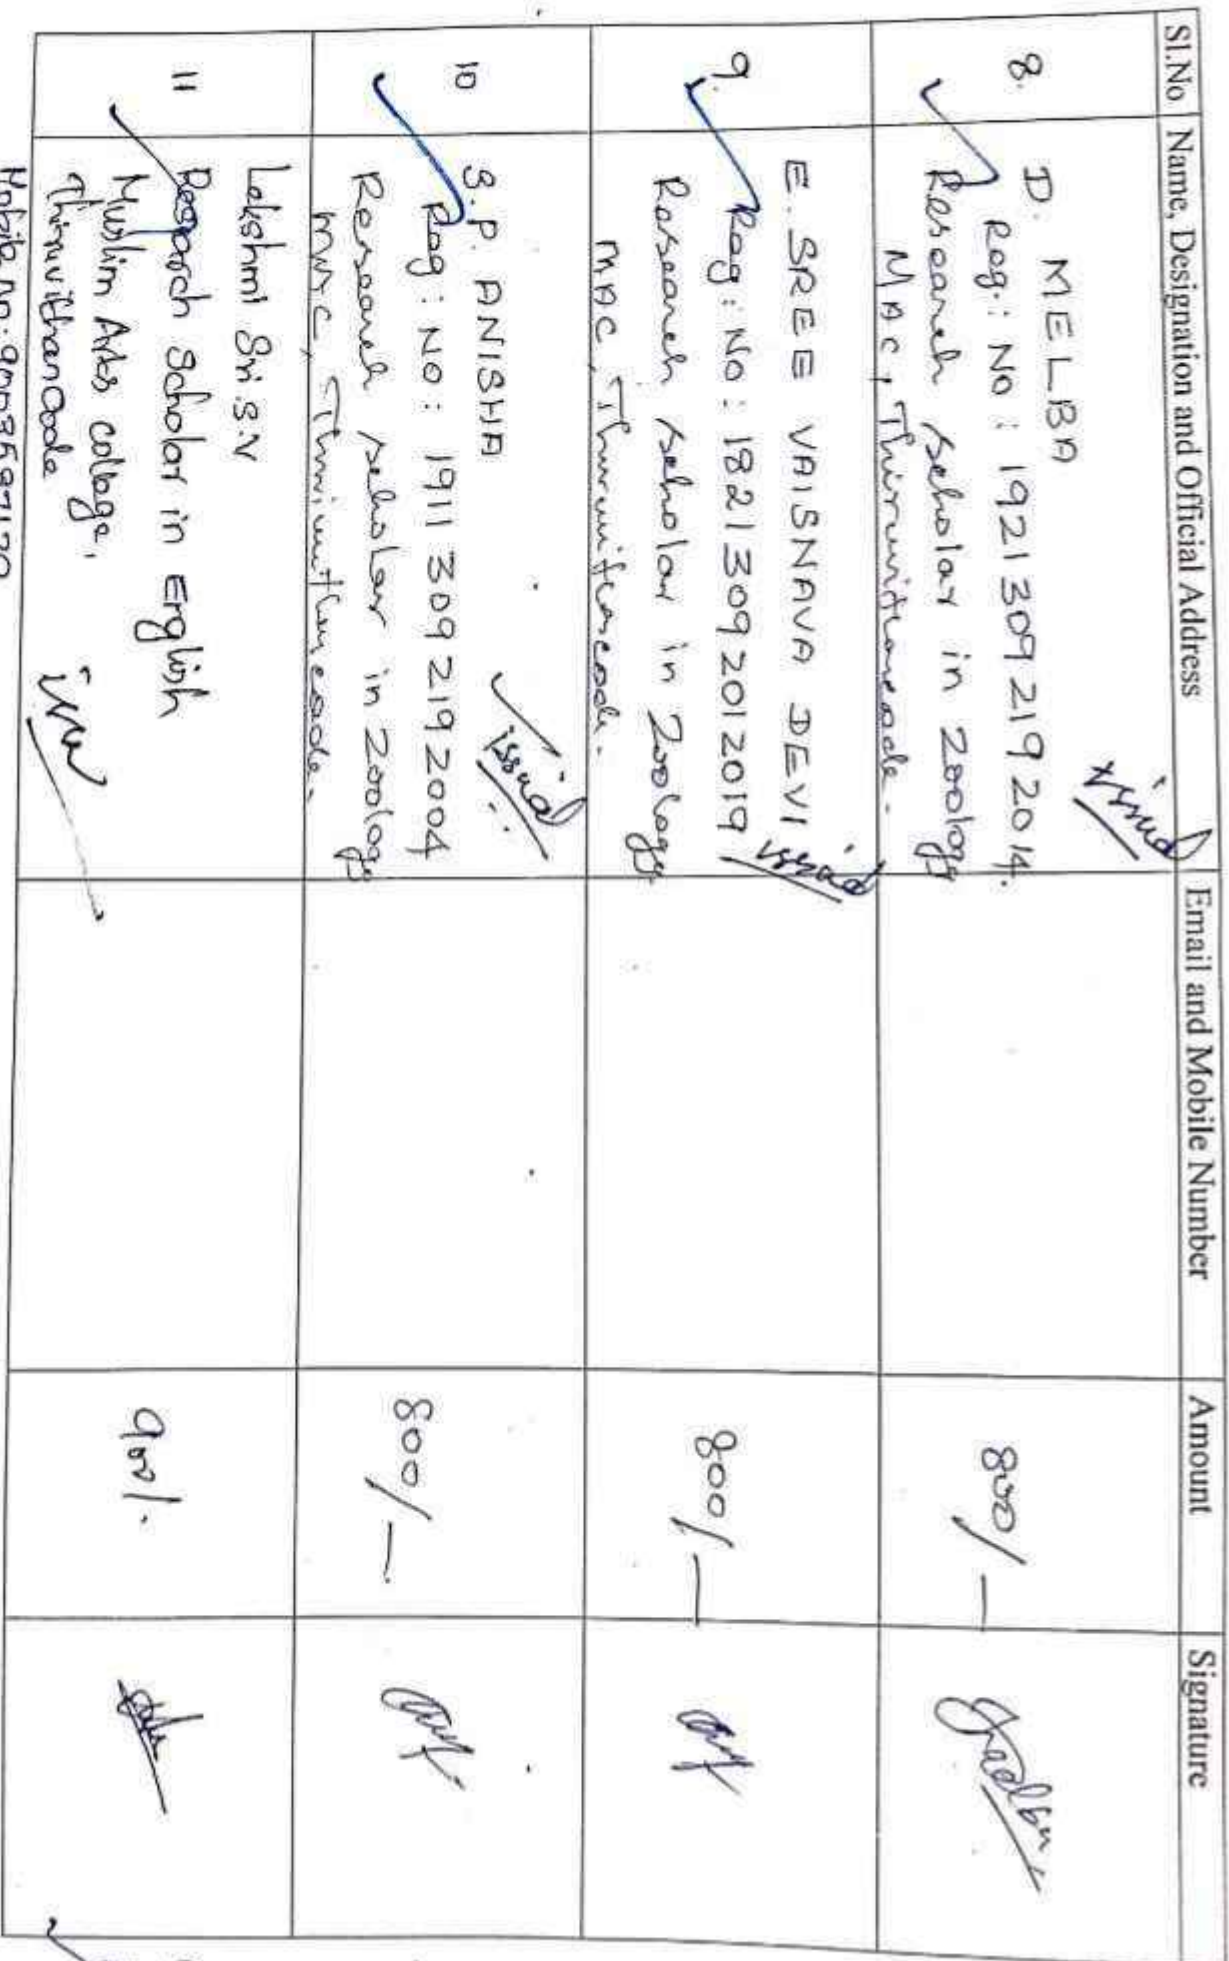 Sl.No Name, Designation and Official Address Email and Mobile Number Amount Signature
8. D. MELBA
Reg: No: 19213092192014.
Research scholar in Zoology
MAC, Thiruvithancode.
issued
800/-
9. E. SREE VAISNAVA DEVI
Reg: No: 18213092012019
Research scholar in Zoology
MAC, Thiruvithancode.
issued
800/-
10 S.P. ANISHA
Reg: No: 19113092192004
Research scholar in Zoology
Thiruvithancode.
issued
800/-
11 Lekshmi Sri.S.V
Research Scholar in English
Muslim Arts college,
Thiruvithancode
Mobile No: 9003587120
900/.